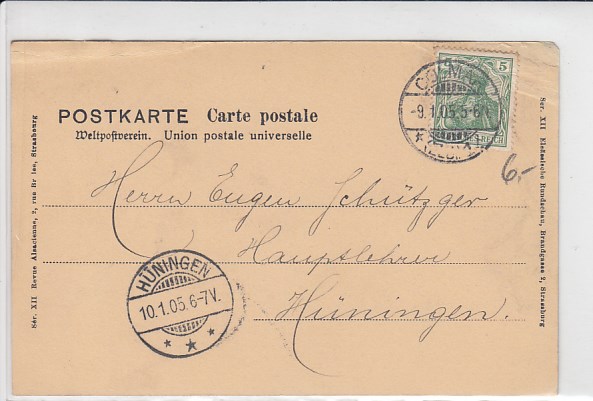 POSTKARTE Carte postale
Weltpostverein. Union postale universelle
5
-9.1.05.5-6
6.-
Herrn Eugen Schützger
Hauptlehrer
Hüningen.
HÜNINGEN
10.1.05.6-7V.
Sér. XII Revue Alsacienne, 2, rue Brûlée, Strasbourg
Ser. XII Elsässische Rundschau, Brandgasse 2, Strassburg